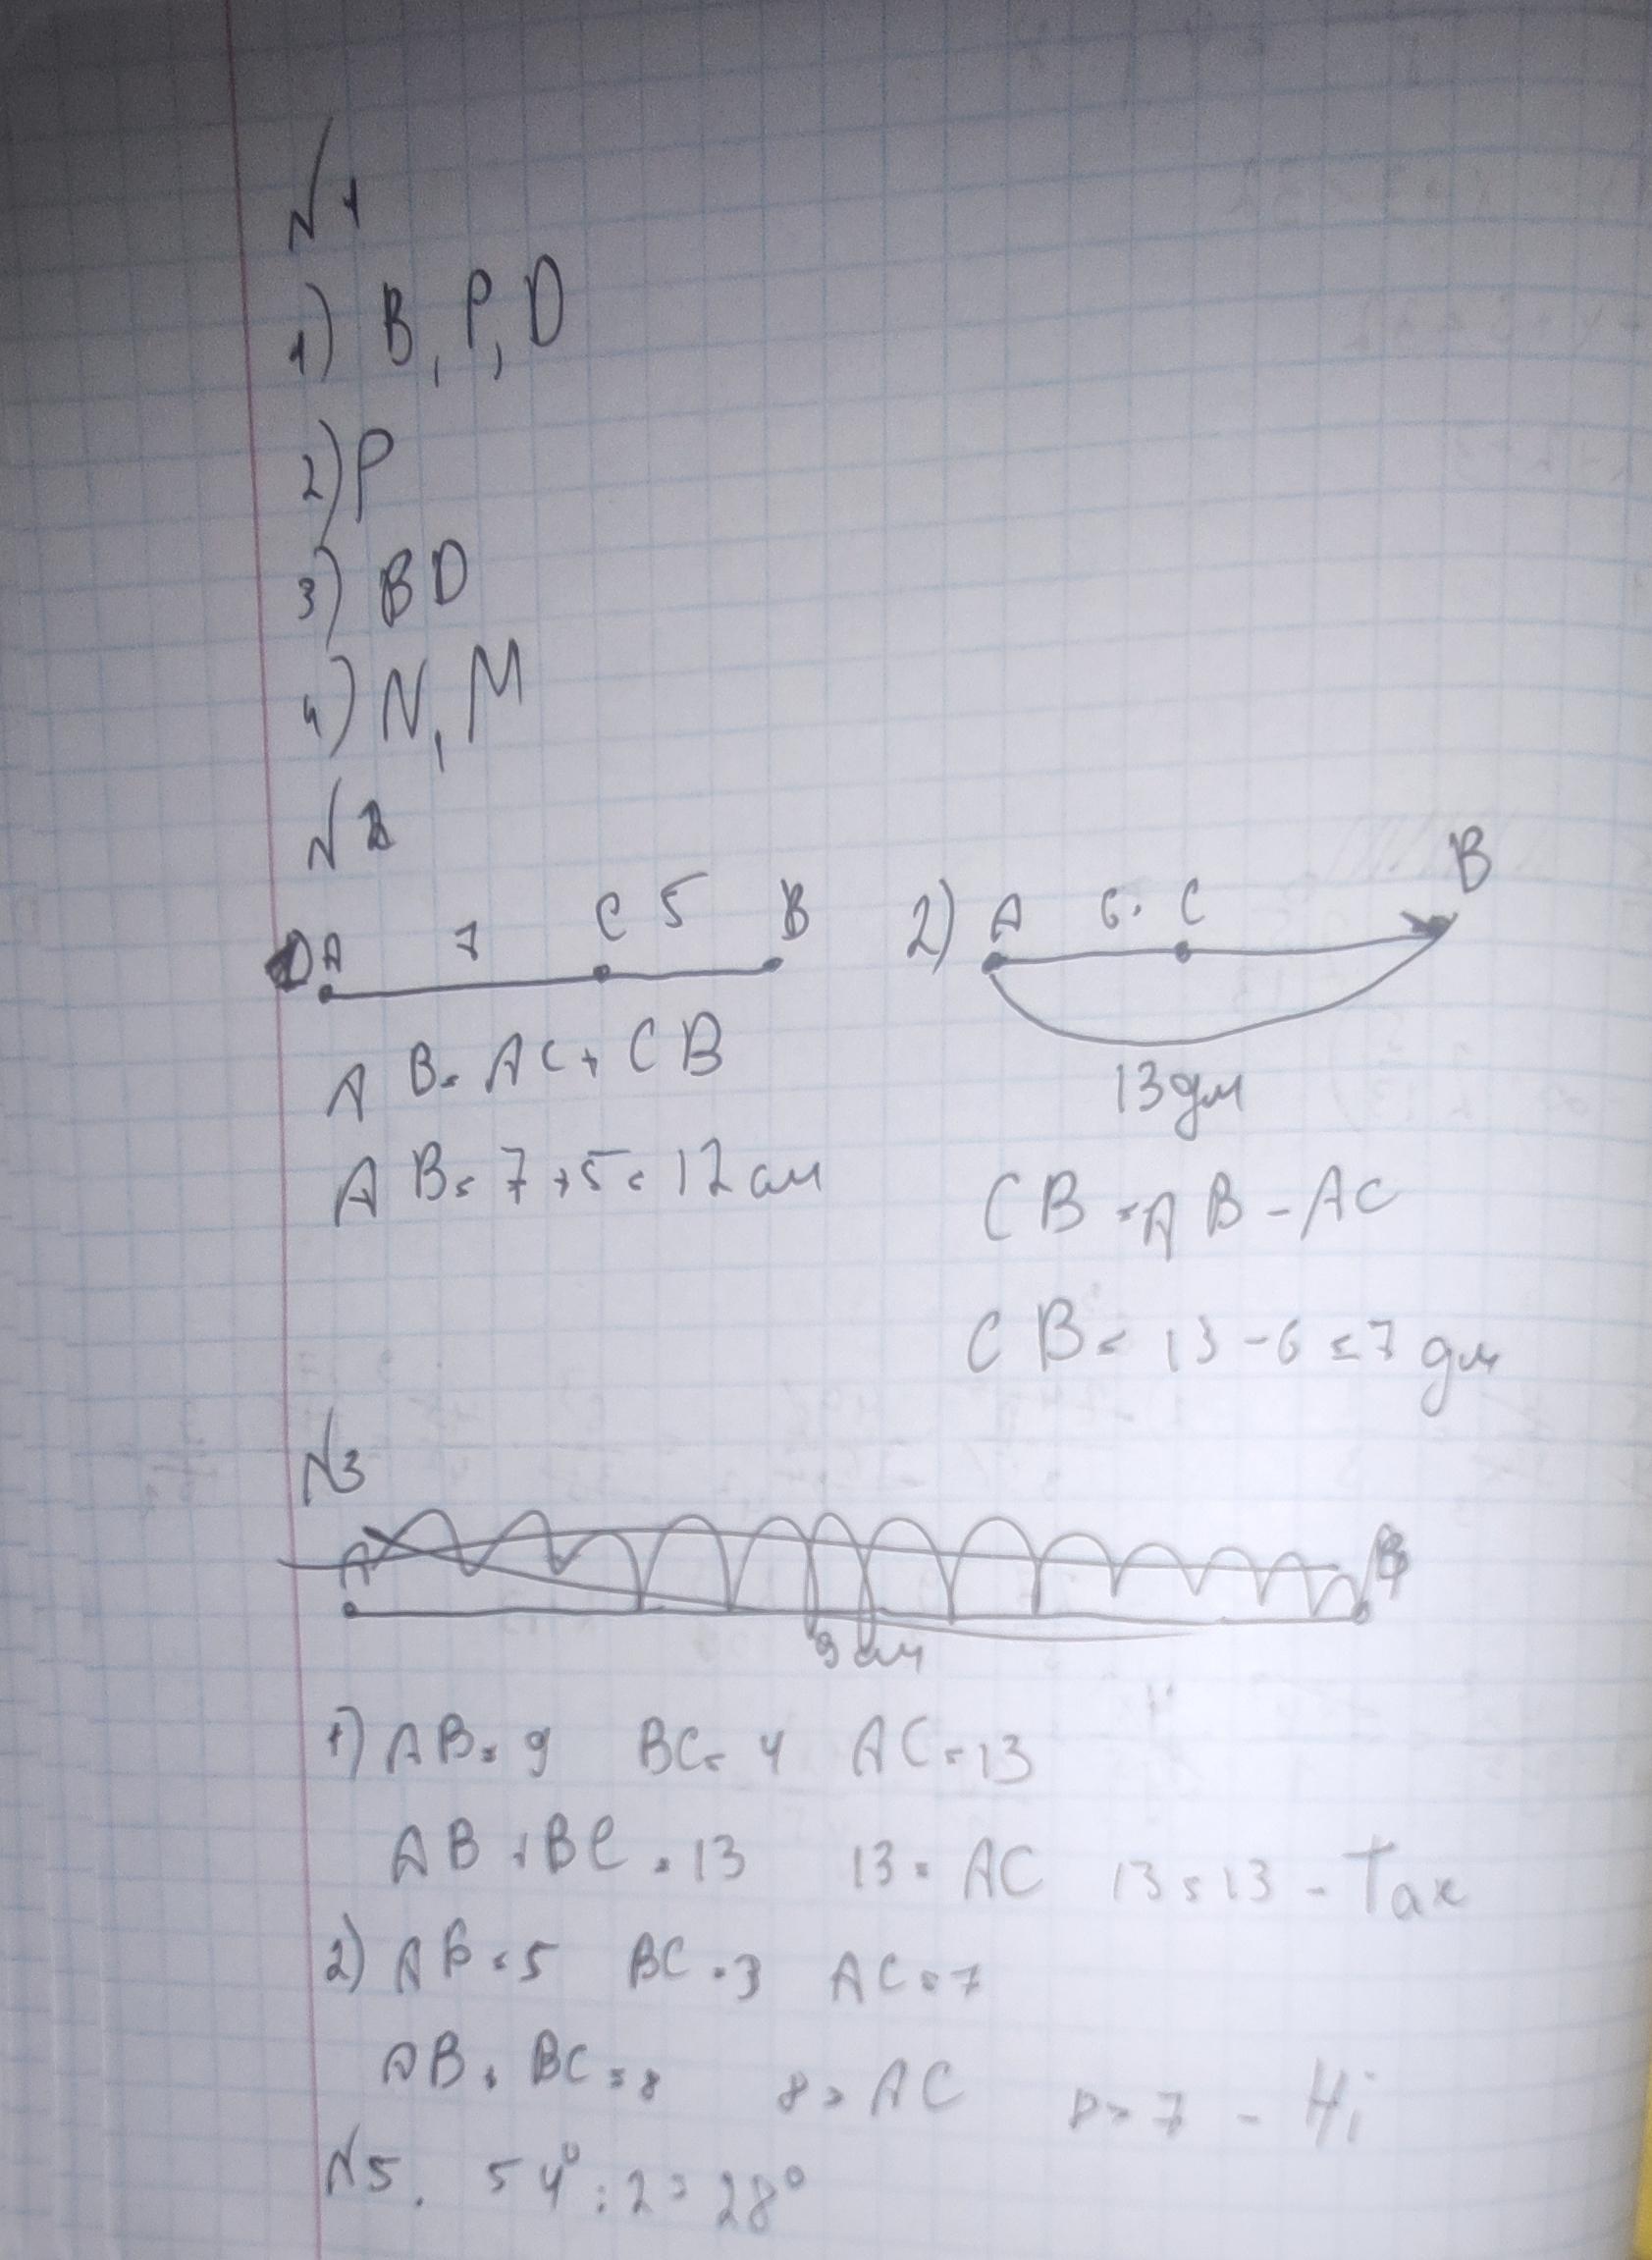 N1
1) B, P, D
2) P
3) BD
4) N, M
N2
1) A 7 C 5 B
AB = AC + CB
AB = 7 + 5 = 12 см
2) A 6. C B
13 дм
CB = AB - AC
CB = 13 - 6 = 7 дм
N3
A B
9 см
1) AB = 9 BC = 4 AC = 13
AB + BC = 13 13 = AC 13 = 13 - Так
2) AB = 5 BC = 3 AC = 7
AB + BC = 8 8 > AC 8 > 7 - Ні
N5. 54° : 2 = 28°